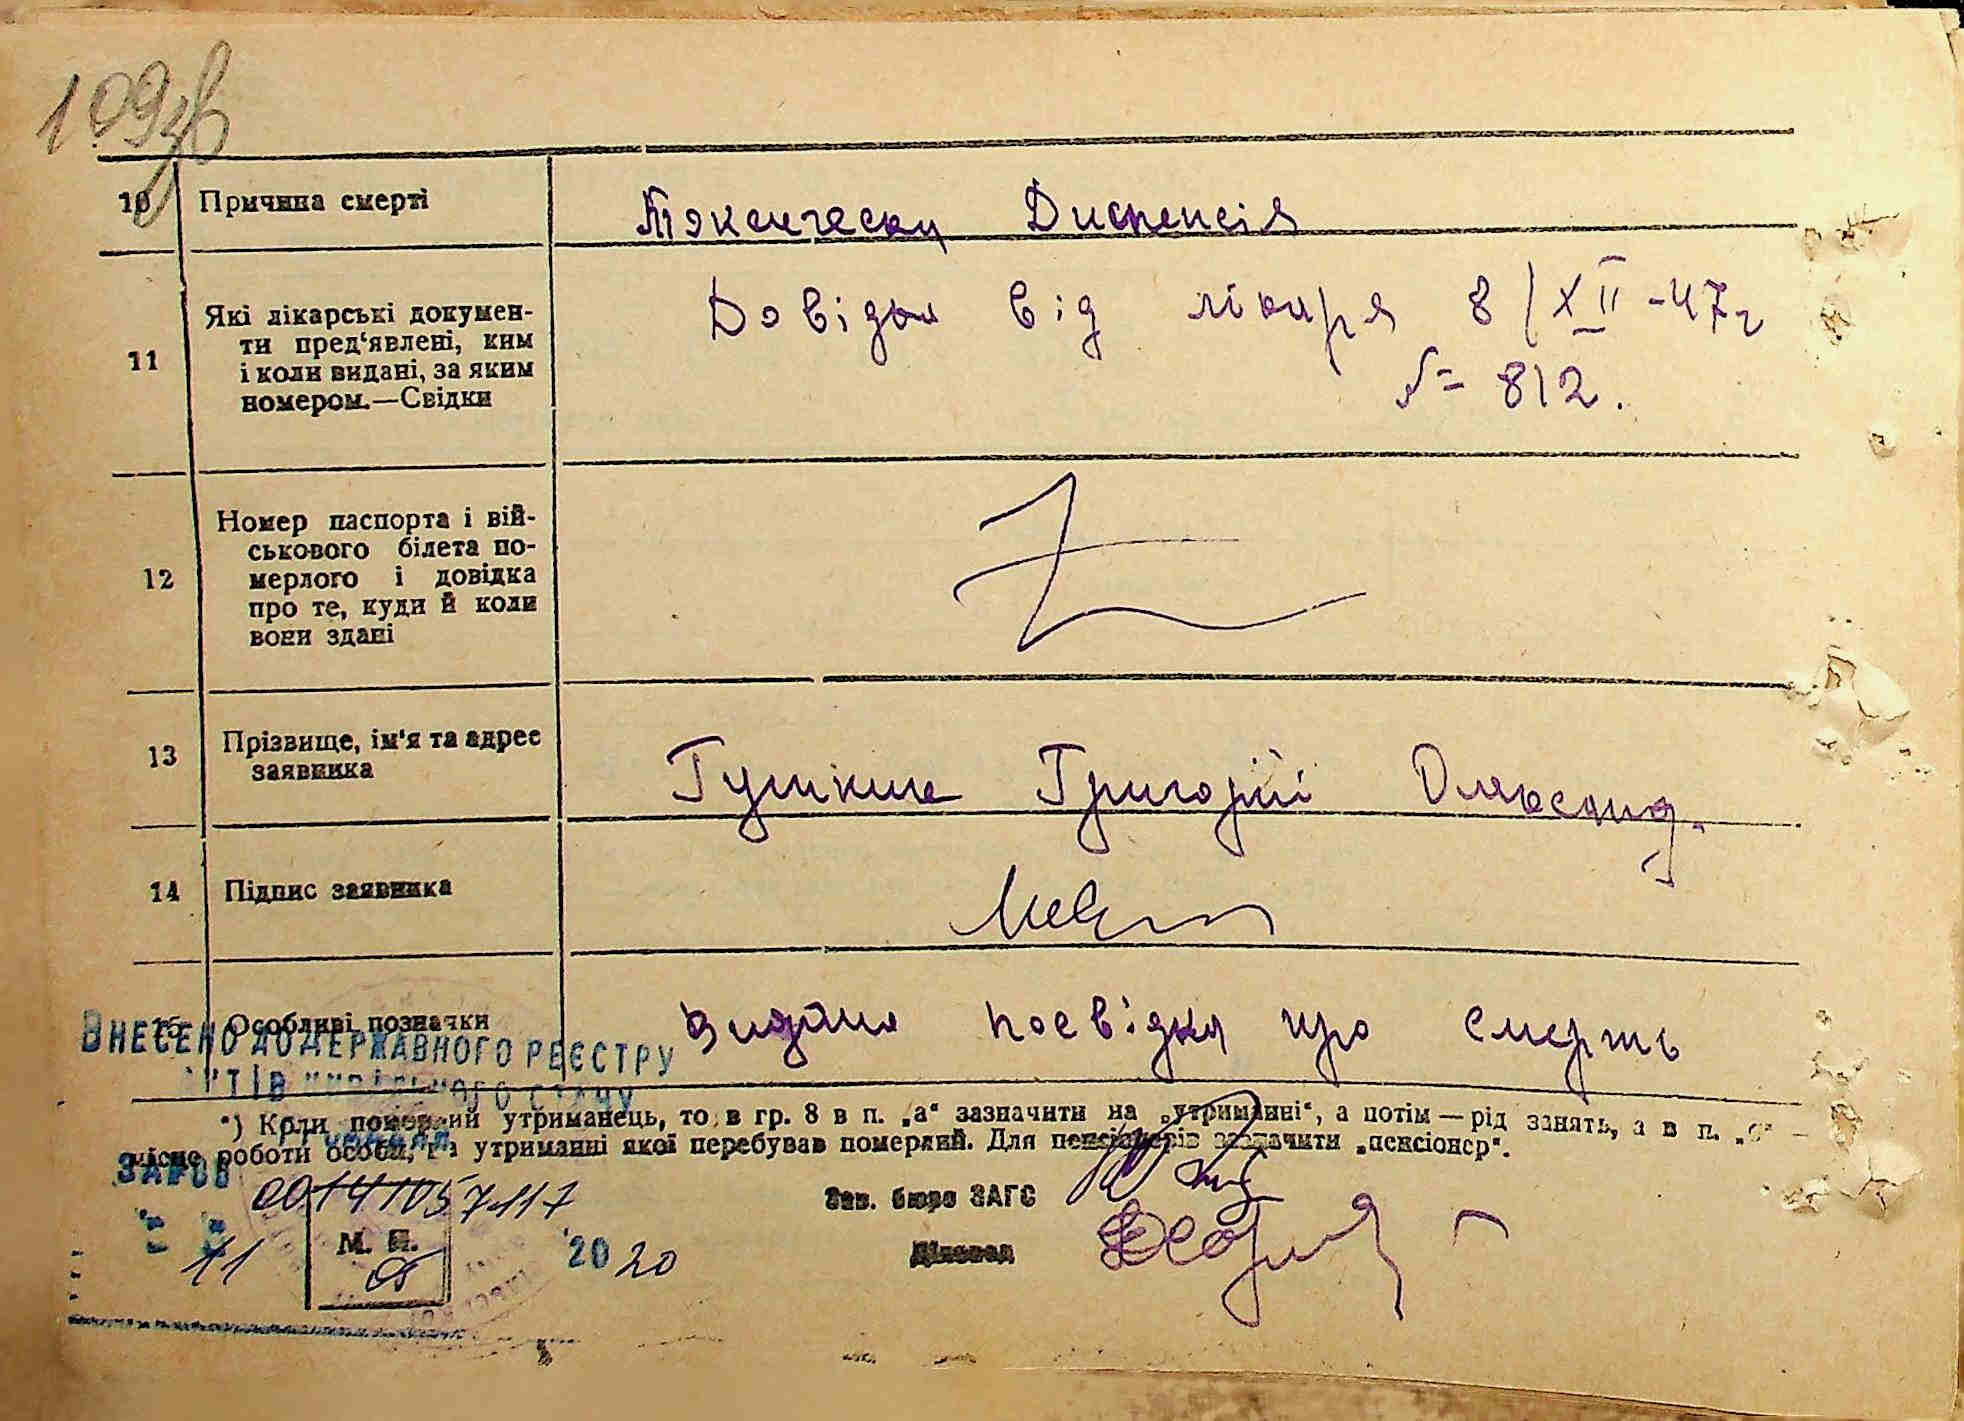 109зв
10 Причина смерті Токсическая Диспепсія
11 Які лікарські докумен-
ти пред'явлені, ким
і коли видані, за яким
номером.—Свідки
Довідка від лікаря 8/XII-47г
№ 812.
12 Номер паспорта і вій-
ськового білета по-
мерлого і довідка
про те, куди й коли
вони здані
13 Прізвище, ім'я та адрес
заявника
Григорій Олександ.
14 Підпис заявника
15 Особливі позначки видано посвідка про смерть
ВНЕСЕНО ДО ДЕРЖАВНОГО РЕЄСТРУ
АКТІВ ЦИВІЛЬНОГО СТАНУ
*) Коли померлий утриманець, то в гр. 8 в п. „а“ зазначити на „утриманні“, а потім — рід занять, а в п. „б“ —
місце роботи особи, на утриманні якої перебував померлий. Для пенсіонерів зазначити „пенсіонер“.
ЗА №
00141057117
Зав. бюро ЗАГС
М. П.
Діловод
11 05 2020